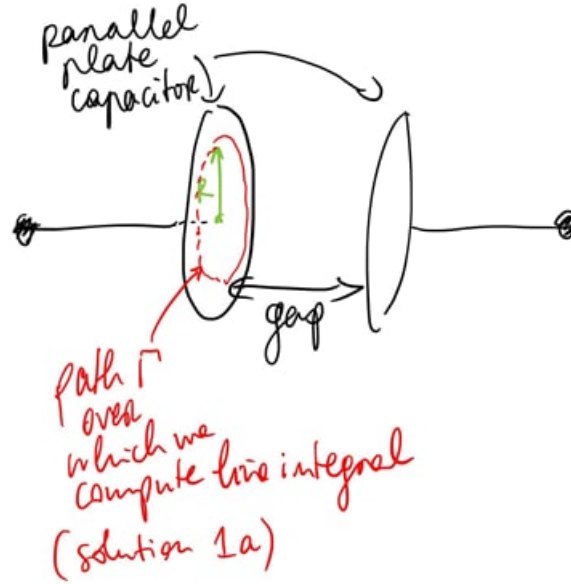 parallel
plate
capacitor
R
gap
path Γ
over
which we
compute line integral
(solution 1a)